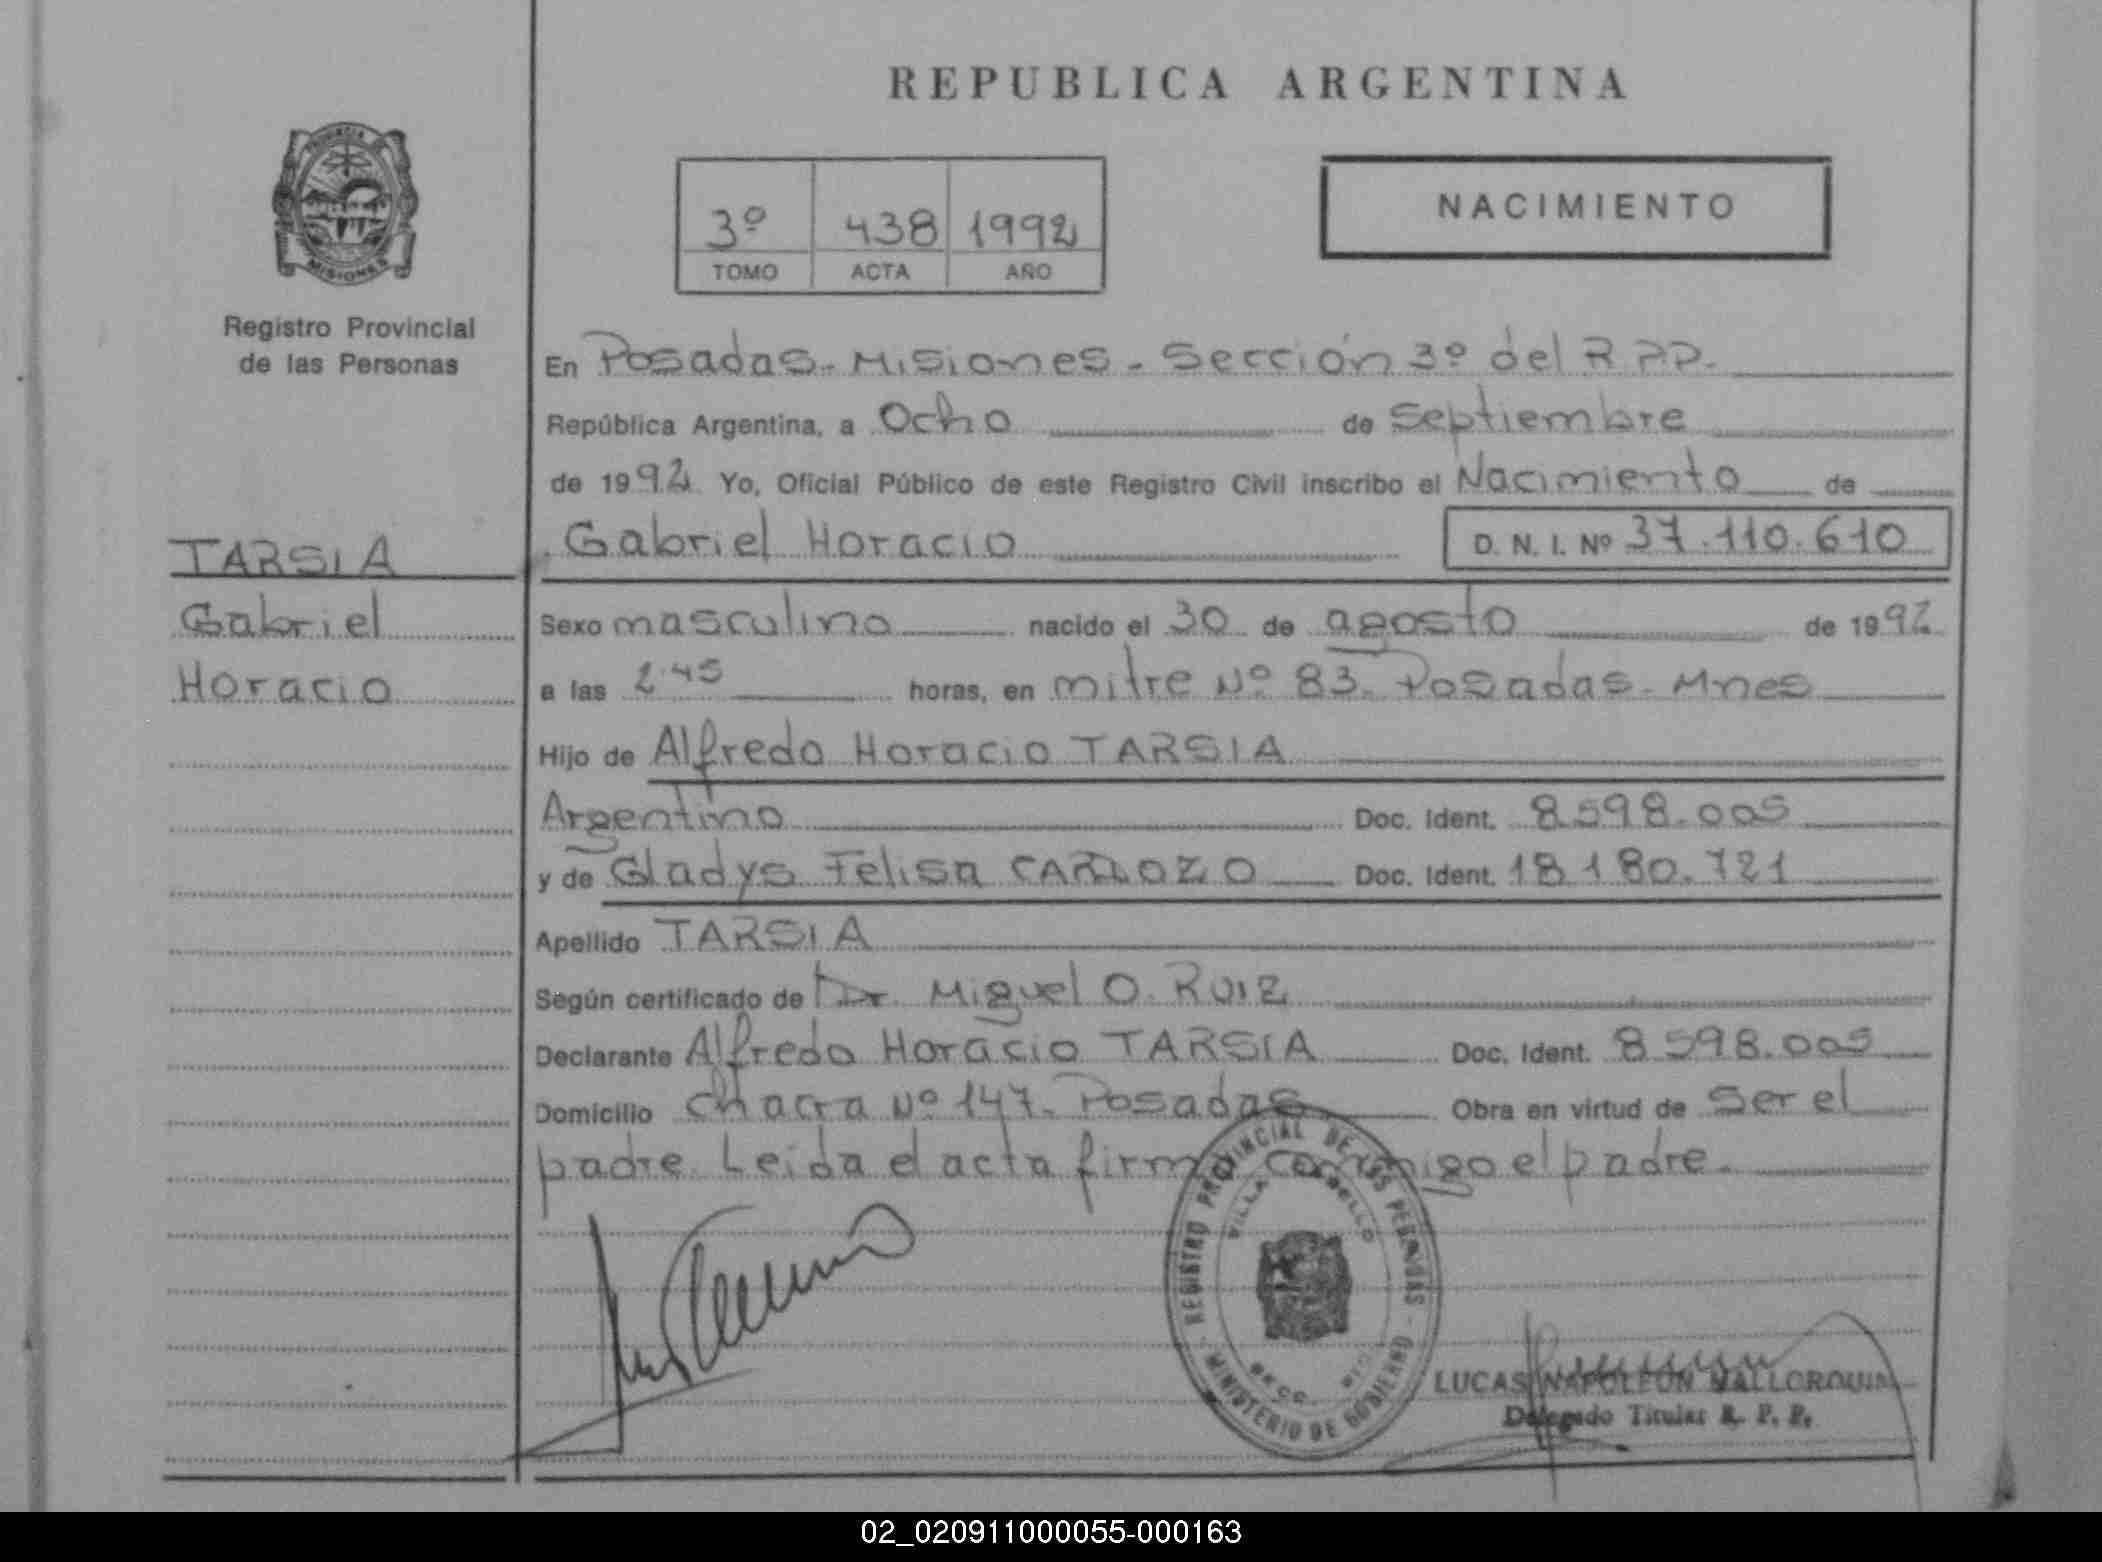 REPUBLICA ARGENTINA
PROVINCIA
MISIONES
Registro Provincial
de las Personas
3º 438 1992
TOMO ACTA AÑO
NACIMIENTO
En Posadas - Misiones - Sección 3º del R.P.P.
República Argentina, a Ocho de Septiembre
de 1992 Yo, Oficial Público de este Registro Civil inscribo el Nacimiento de
Gabriel Horacio D. N. I. Nº 37.110.610
TARSIA
Gabriel
Horacio
Sexo masculino nacido el 30 de agosto de 1992
a las 2.45 horas, en mitre Nº 83. Posadas - Mnes
Hijo de Alfredo Horacio TARSIA
Argentino Doc. Ident. 8.598.005
y de Gladys Felisa Doc. Ident. 18.180.721
Apellido TARSIA
Según certificado de Dr. Miguel O. RUIZ
Declarante Alfredo Horacio TARSIA Doc. Ident. 8.598.005
Domicilio chacra Nº 147. Posadas Obra en virtud de ser el
padre. Leida el acta firma conmigo el padre.
REGISTRO PROVINCIAL DE LAS PERSONAS
VILLA CABELLO
MINISTERIO DE GOBIERNO
LUCAS NAPOLEON MALLORQUIN
Delegado Titular R. P. P.
02_020911000055-000163